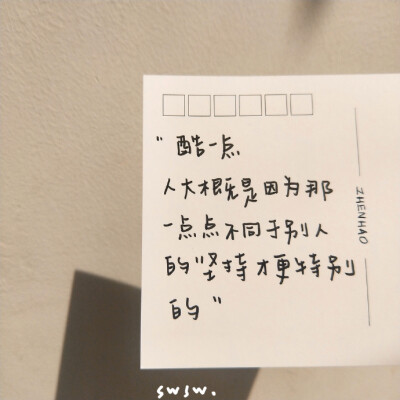 "酷一点
人大概是因为那
一点点不同于别人
的"坚持才更特别
的"
ZHENHAO
swsw.